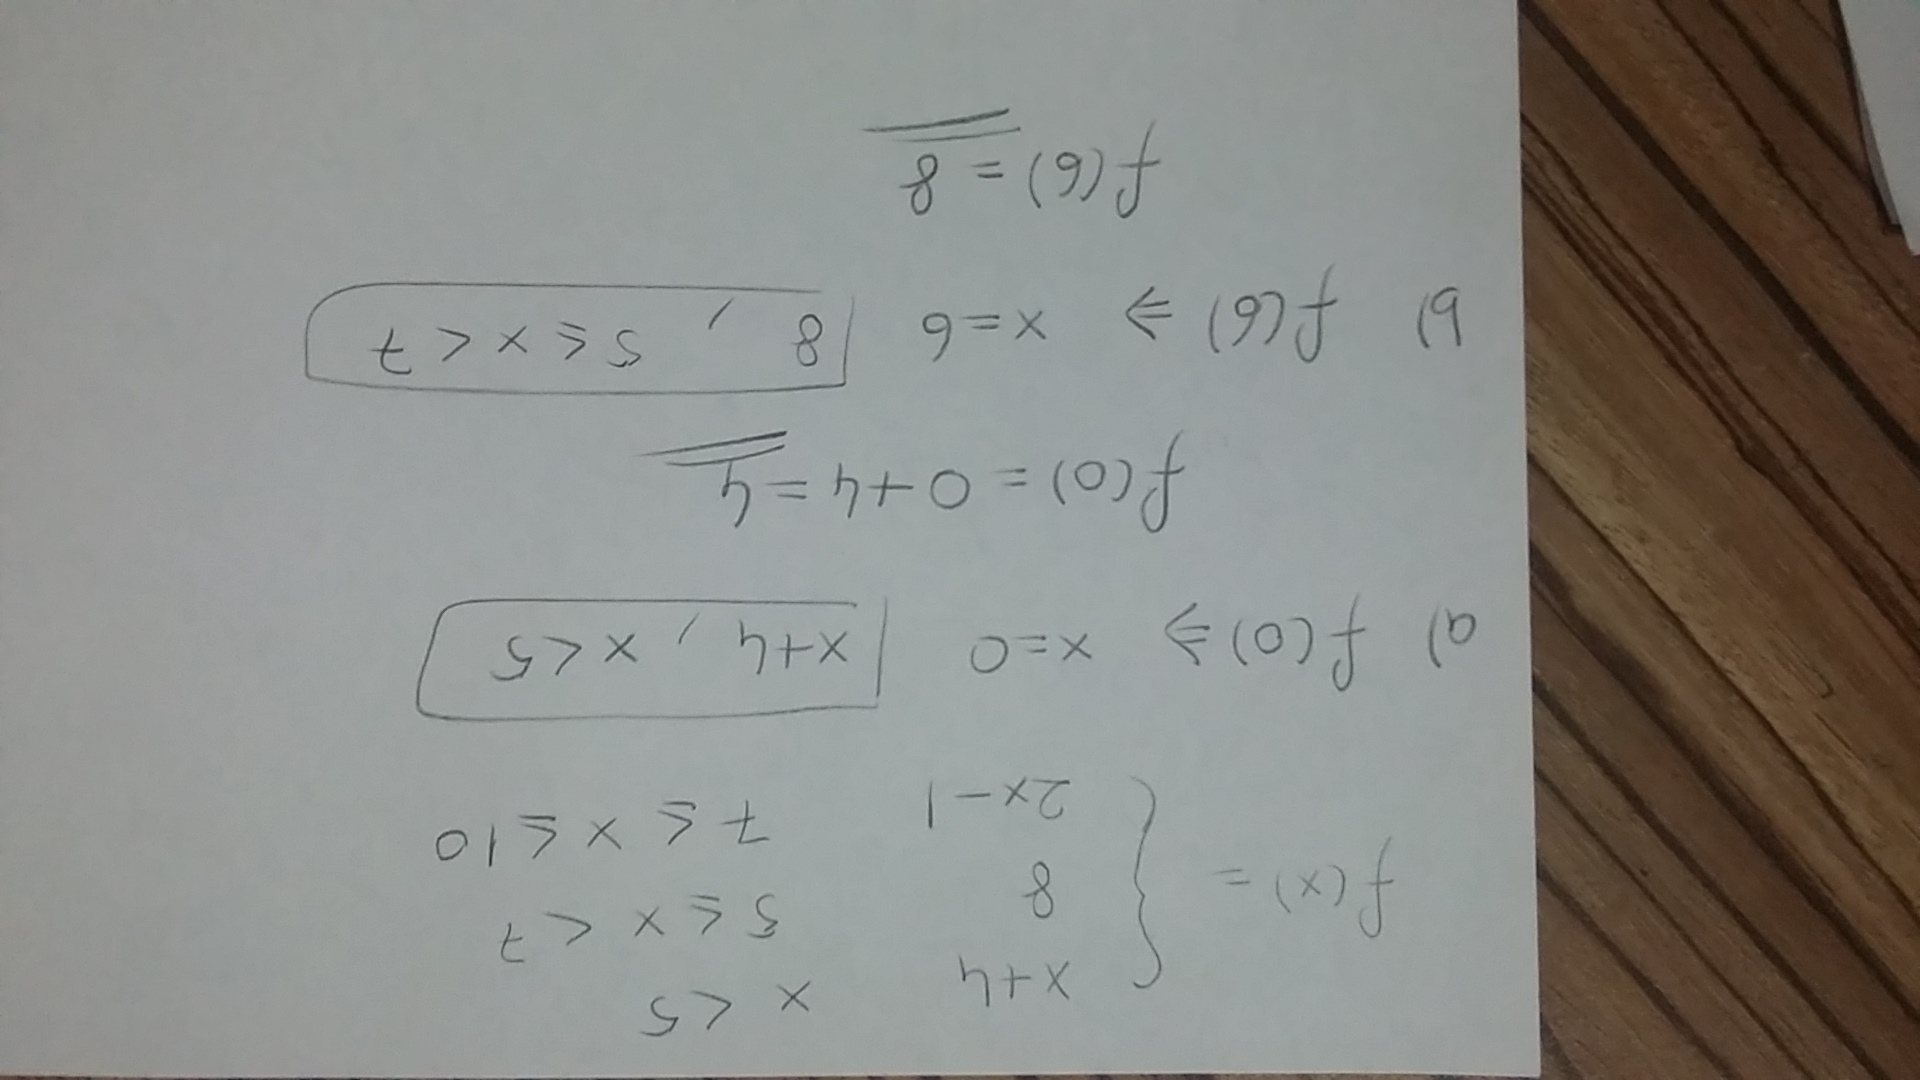 f(x) = { x+4 x < 5
8 5 ≤ x < 7
2x-1 7 ≤ x ≤ 10
a) f(0) ⇒ x=0 x+4 , x<5
f(0) = 0+4 = 4
b) f(6) ⇒ x=6 8 , 5 ≤ x < 7
f(6) = 8